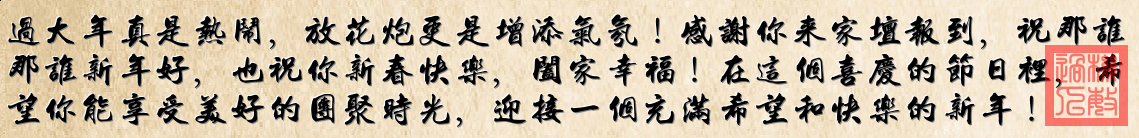 過大年真是熱鬧，放花炮更是增添氣氛！感謝你来家壇報到，祝那誰
那誰新年好，也祝你新春快樂，闔家幸福！在這個喜慶的節日裡，希
望你能享受美好的團聚時光，迎接一個充滿希望和快樂的新年！